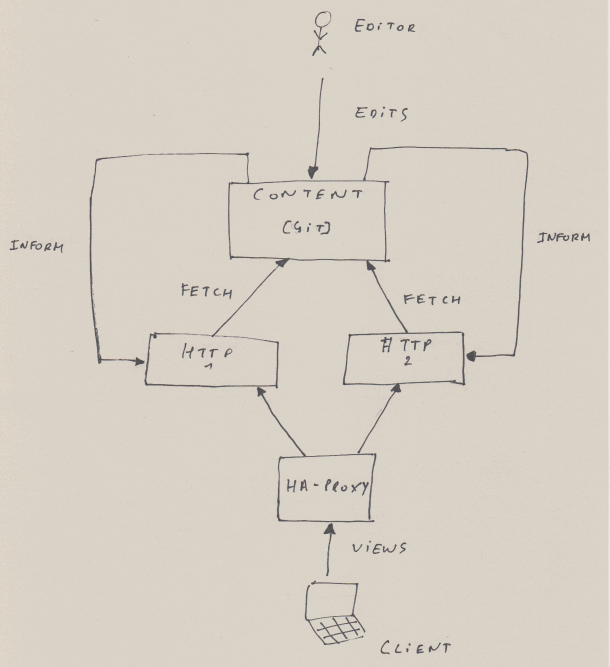 EDiTOR
EDiTS
CONTENT
[GiT]
INFORM
INFORM
FETCH
FETCH
HTTP
1
HTTP
2
HA-PROXY
ViEWS
CLiENT